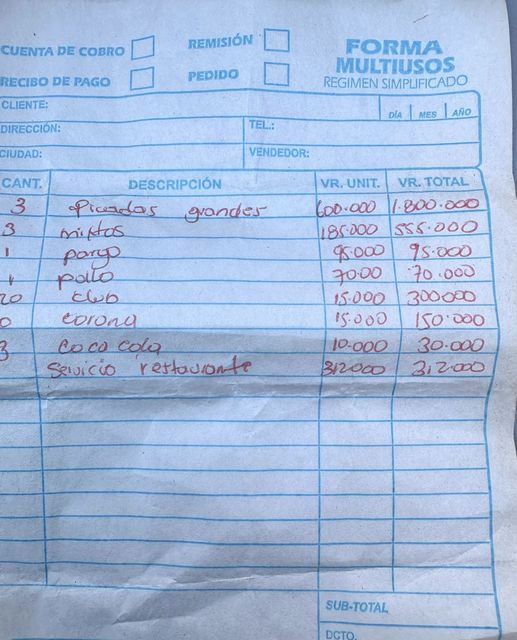 CUENTA DE COBRO
REMISIÓN
FORMA
MULTIUSOS
RECIBO DE PAGO
PEDIDO
REGIMEN SIMPLIFICADO
CLIENTE:
DÍA MES AÑO
DIRECCIÓN:
TEL.:
CIUDAD:
VENDEDOR:
CANT. DESCRIPCIÓN VR. UNIT. VR. TOTAL
3 Picadas grandes 600.000 1.800.000
3 mixtos 185.000 555.000
1 pargo 95.000 95.000
1 pollo 70.00 70.000
20 club 15.000 300000
0 corona 15.000 150.000
3 coca cola 10.000 30.000
Servicio restaurante 312000 312.000
SUB-TOTAL
DCTO.